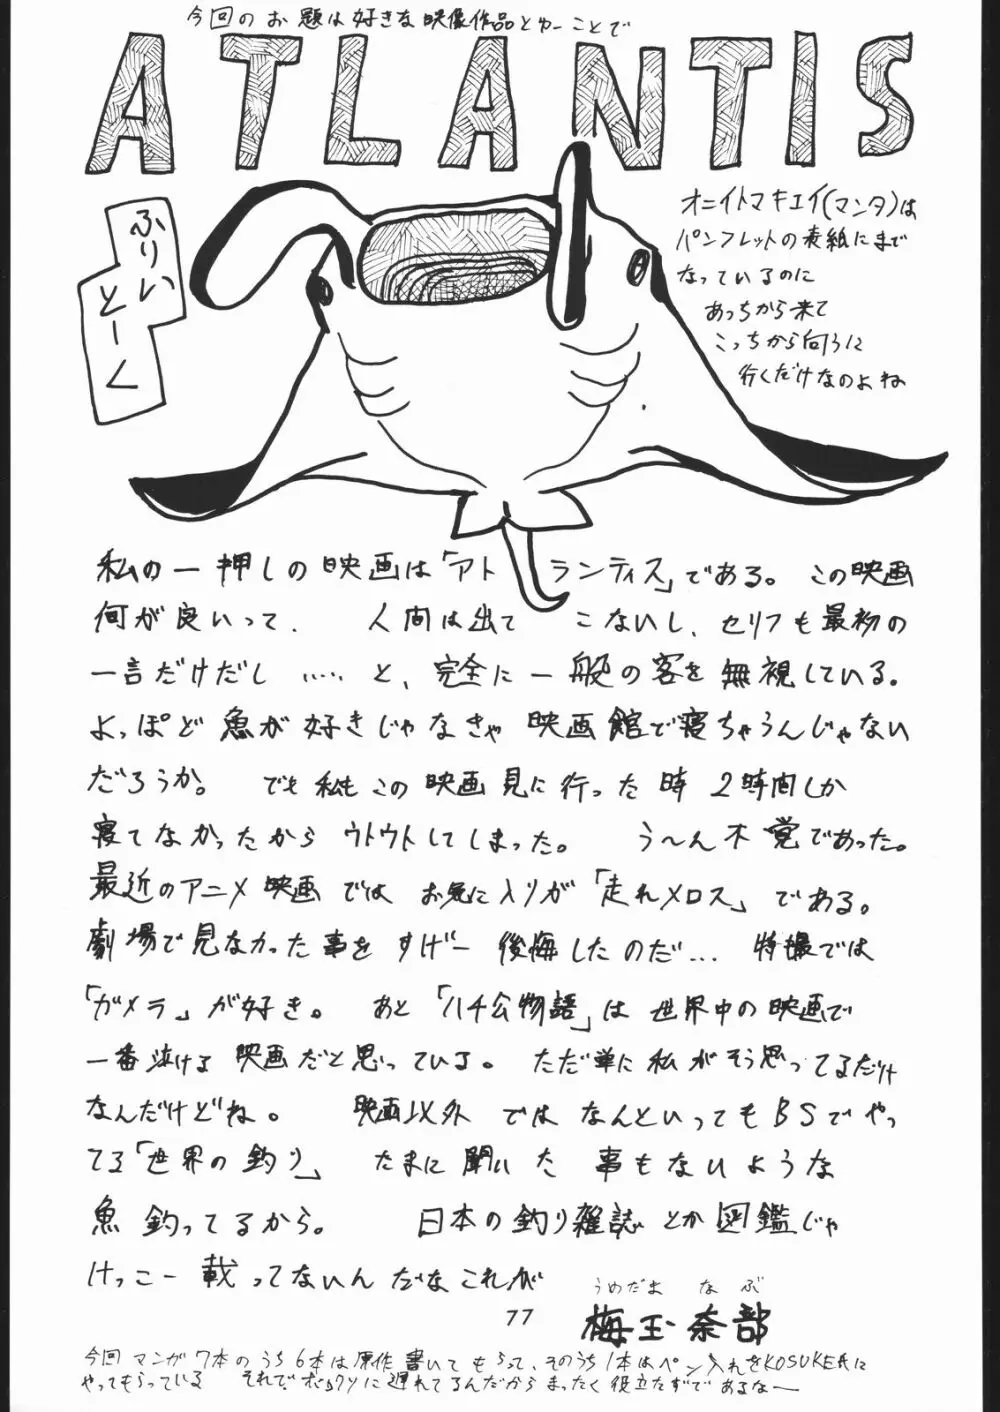 今回のお題は好きな映像作品とゆーことで
ATLANTIS
ふりい
とーく
オニイトマキエイ(マンタ)は
パンフレットの表紙にまで
なっているのに
あっちから来て
こっちから向うに
行くだけなのよね
私の一押しの映画は「アトランティス」である。この映画
何が良いって、人間は出てこないし、セリフも最初の
一言だけだし……と、完全に一般の客を無視している。
よっぽど魚が好きじゃなきゃ映画館で寝ちゃうんじゃない
だろうか。でも私もこの映画見に行った時2時間しか
寝てなかったからウトウトしてしまった。う〜ん不覚であった。
最近のアニメ映画ではお気に入りが「走れメロス」である。
劇場で見なかった事をすげー後悔したのだ… 特撮では
「ガメラ」が好き。あと「ハチ公物語」は世界中の映画で
一番泣ける映画だと思っている。ただ単に私がそう思ってるだけ
なんだけどね。映画以外ではなんといってもBSでやっ
てる「世界の釣り」たまに聞いた事もないような
魚釣ってるから。日本の釣り雑誌とか図鑑じゃ
けっこー載ってないんだなこれが
うめだま なぶ
梅玉奈部
77
今回マンガ7本のうち6本は原作書いてもらって、そのうち1本はペン入れをKOSUKE氏に
やってもらっている それでボックリに遅れてるんだからまったく役立たずであるなー